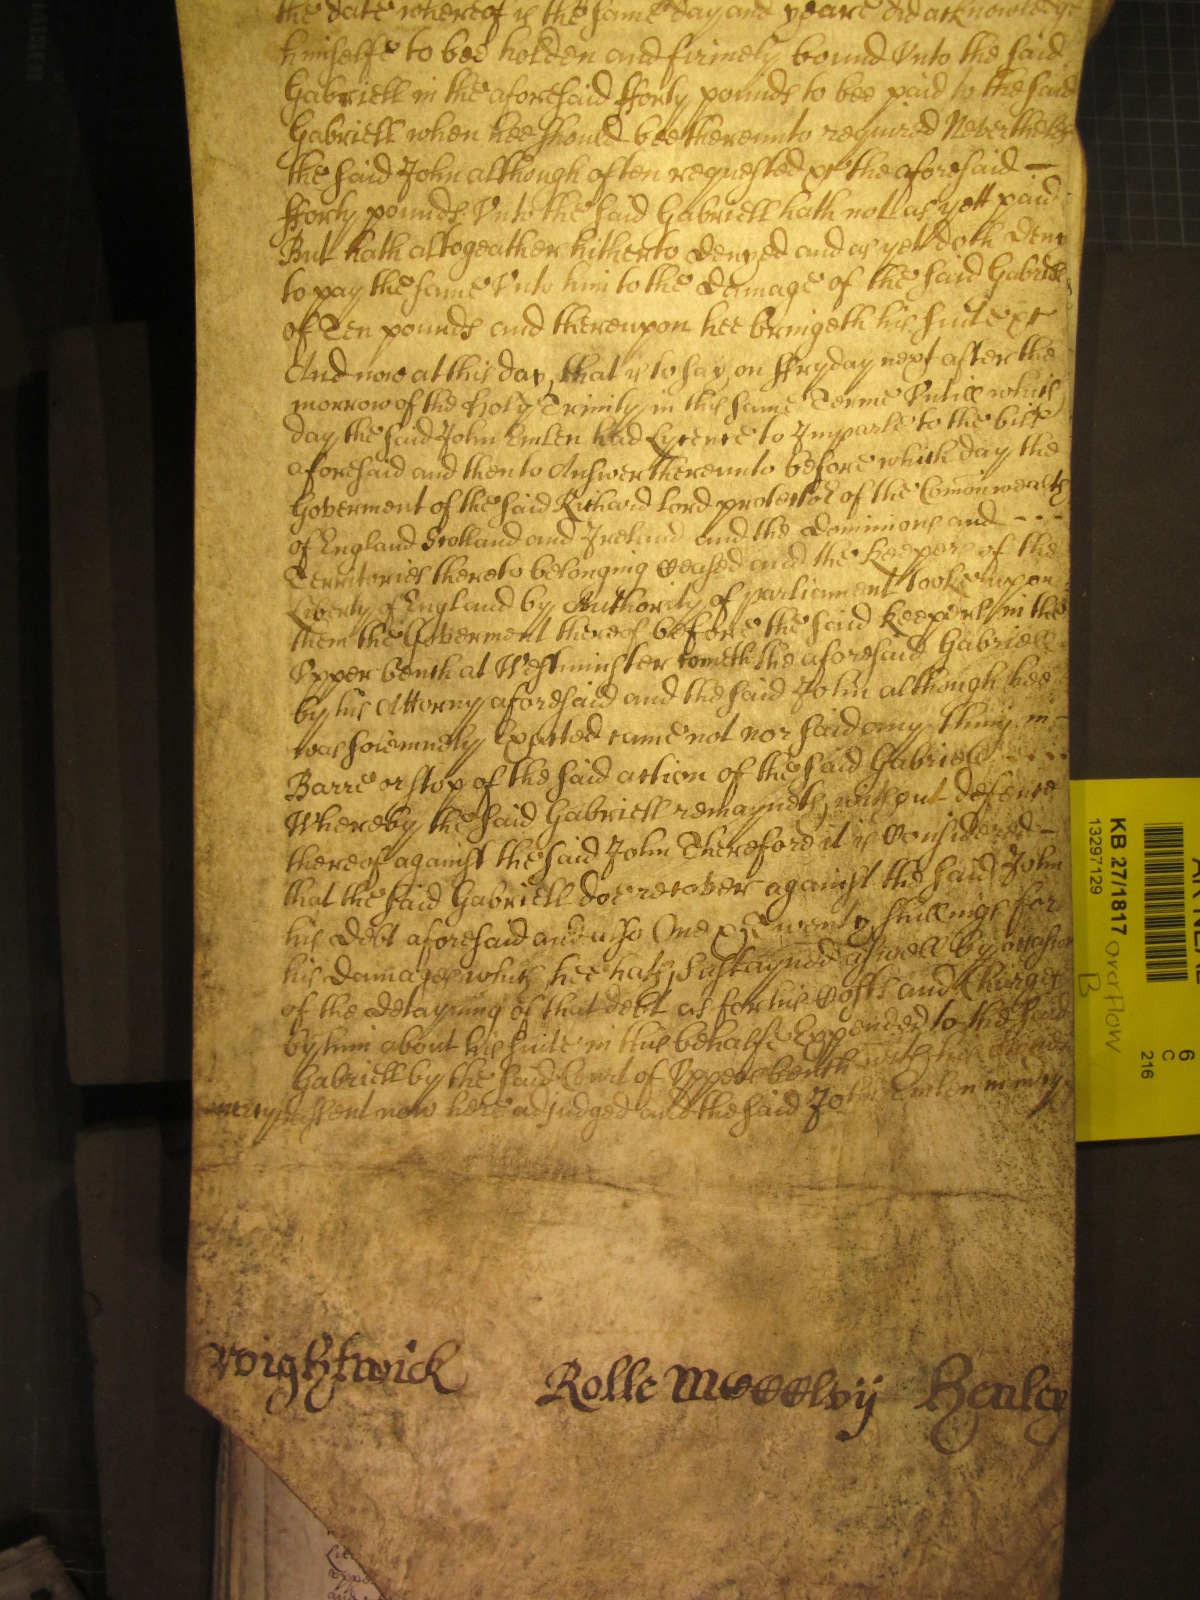 the date whereof is the same day and yeare did acknowledge
himselfe to bee holden and firmely bound Unto the said
Gabriell in the aforesaid fforty pounds to bee paid to the said
Gabriell when hee should bee thereunto required Neverthelesse
the said John although often requested &c the aforesaid –
fforty pounds Unto the said Gabriell hath not as yett paid
But hath altogeather hitherto denyed and as yet doth deny
to pay the same Unto him to the damage of the said Gabriell
of Ten pounds and thereupon hee bringeth his suite &c
And now at this day, that is to say, on ffryday next after the
morrow of the Holy Trinity in this same Terme Untill which
day the said John Emlen had Lycence to Imparle to the bill
aforesaid and then to Answer thereunto before which day the
Goverment of the said Richard Lord protector of the Comonwealth
of England Scotland and Ireland and the Dominions and - - -
Territories thereto belonging ceased and the Keepers of the
Liberty of England by Authority of parliament tooke upon
them the Goverment thereof before the said Keepers in the
Upper bench at Westminster cometh the aforesaid Gabriell
by his Attorny aforesaid and the said John although hee
was solemnely Exacted came not nor said any thing in
Barre or stop of the said action of the said Gabriell
Whereby the said Gabriell remayneth without defence
thereof against the said John Therefore it is Considered –
that the said Gabriell doe recover against the said John
his Debt aforesaid and also One & Twenty shillings for
his damages which hee hath Sustayned aswell by occasion
of the detayning of that debt as for his Costs and Charges
by him about his suite in this behalfe Expended to the said
Gabriell by the said Court of Upper bench with his
assent now here adjudged and the said John Emlen in mercy
mercy
Wightwick Rolle Mo Ellvij Henley
KB 27/1817
13297129
overflow
B
6
C
216